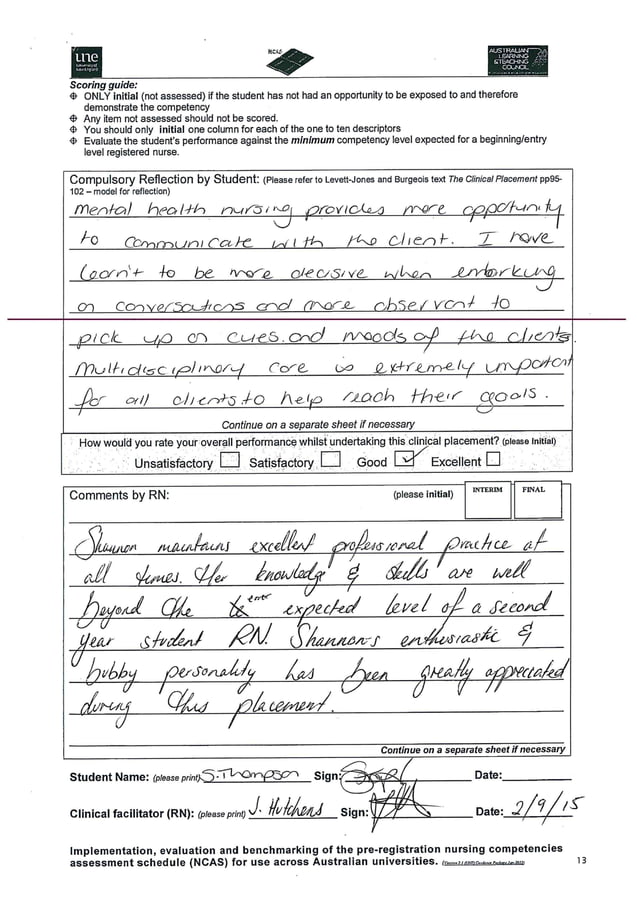 une
NCAS
AUSTRALIAN
LEARNING
&TEACHING
COUNCIL
Scoring guide:
ONLY initial (not assessed) if the student has not had an opportunity to be exposed to and therefore
demonstrate the competency
Any item not assessed should not be scored.
You should only initial one column for each of the one to ten descriptors
Evaluate the student's performance against the minimum competency level expected for a beginning/entry
level registered nurse.
Compulsory Reflection by Student: (Please refer to Levett-Jones and Burgeois text The Clinical Placement pp95-
102 – model for reflection)
Mental health nursing provides more opportunity
to communicate with the client. I have
learn't to be more decisive when embarking
on conversations and more observant to
pick up on cues and moods of the clients.
Multidisciplinary care is extremely important
for all clients to help reach their goals.
Continue on a separate sheet if necessary
How would you rate your overall performance whilst undertaking this clinical placement? (please initial)
Unsatisfactory Satisfactory Good Excellent
Comments by RN: (please initial) INTERIM FINAL
Shannon maintains excellent professional practice at
all times. Her knowledge & skills are well
beyond the error expected level of a second
year student RN. Shannon's enthusiastic &
bubby personality has been greatly appreciated
during this placement.
Continue on a separate sheet if necessary
Student Name: (please print) S. Thompson Sign: Date:
Clinical facilitator (RN): (please print) J. Hutchens Sign: Date: 2/9/15
Implementation, evaluation and benchmarking of the pre-registration nursing competencies
assessment schedule (NCAS) for use across Australian universities.
13